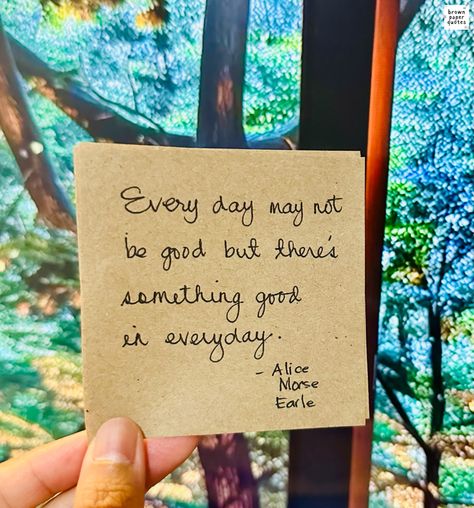 brown
paper
quotes
Every day may not
be good but there's
something good
in everyday.
- Alice
Morse
Earle